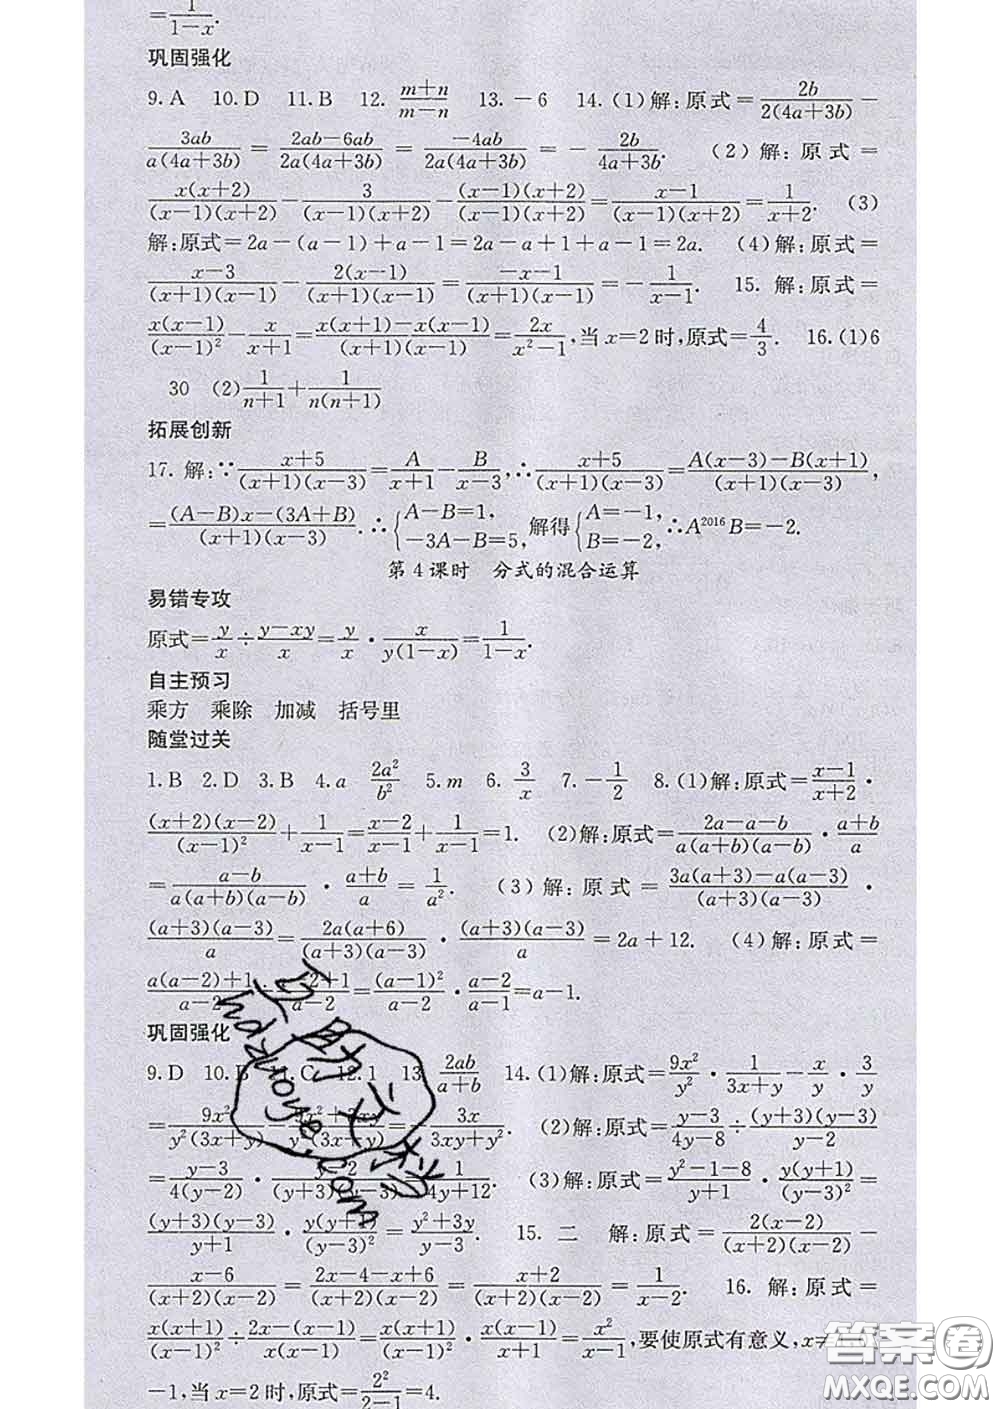 =1/(1-x).
巩固强化
9.A 10.D 11.B 12. (m+n)/(m-n) 13.-6 14.(1)解:原式=2b/(2(4a+3b))-
3ab/(a(4a+3b))=(2ab-6ab)/(2a(4a+3b))=(-4ab)/(2a(4a+3b))=-2b/(4a+3b). (2)解:原式=
x(x+2)/((x-1)(x+2))-3/((x-1)(x+2))-(x-1)(x+2)/((x-1)(x+2))=(x-1)/((x-1)(x+2))=1/(x+2). (3)
解:原式=2a-(a-1)+a-1=2a-a+1+a-1=2a. (4)解:原式=
(x-3)/((x+1)(x-1))-2(x-1)/((x+1)(x-1))=(-x-1)/((x+1)(x-1))=-1/(x-1). 15. 解:原式=
x(x-1)/(x-1)²-x/(x+1)=(x(x+1)-x(x-1))/((x+1)(x-1))=2x/(x²-1),当x=2时,原式=4/3. 16.(1)6
30 (2)1/(n+1)+1/(n(n+1))
拓展创新
17. 解:∵(x+5)/((x+1)(x-3))=A/(x+1)-B/(x-3),∴(x+5)/((x+1)(x-3))=(A(x-3)-B(x+1))/((x+1)(x-3)),
=((A-B)x-(3A+B))/((x+1)(x-3)).∴{A-B=1, -3A-B=5,解得{A=-1, B=-2.∴A²⁰¹⁶B=-2.
第4课时 分式的混合运算
易错专攻
原式=y/x÷(y-xy)/x=y/x·x/(y(1-x))=1/(1-x).
自主预习
乘方 乘除 加减 括号里
随堂过关
1.B 2.D 3.B 4.a 2a²/b² 5.m 6. 3/x 7.-1/2 8.(1)解:原式=(x-1)/(x+2)·
(x+2)(x-2)/(x-1)²+1/(x-1)=(x-2)/(x-1)+1/(x-1)=1. (2)解:原式=(2a-a-b)/(a(a+b)(a-b))·(a+b)/a
=(a-b)/(a(a+b)(a-b))·(a+b)/a=1/a². (3)解:原式=(3a(a+3)-a(a-3))/((a+3)(a-3))·
(a+3)(a-3)/a=2a(a+6)/((a+3)(a-3))·(a+3)(a-3)/a=2a+12. (4)解:原式=
(a(a-2)+1)/(a-2) -2+1/(a-2)=(a-1)²/(a-2)·(a-2)/(a-1)=a-1.
巩固强化
9.D 10.B 11.C 12.1 13. 2ab/(a+b) 14.(1)解:原式=9x²/y²·1/(3x+y)-x/y·3/y
=9x²/(y²(3x+y))-(9x²+3xy)/(y²(3x+y))=3x/(3xy+y²). (2)解:原式=(y-3)/(4y-8)÷(y+3)(y-3)/(y-2)
=(y-3)/(4(y-2))·(y-2)/((y+3)(y-3))=1/(4y+12). (3)解:原式=(y²-1-8)/(y+1)·y(y+1)/(y-3)²=
(y+3)(y-3)/(y+1)·y(y+1)/(y-3)²=(y²+3y)/(y-3). 15. 二 解:原式=2(x-2)/((x+2)(x-2))-
(x-6)/((x+2)(x-2))=(2x-4-x+6)/((x+2)(x-2))=(x+2)/((x+2)(x-2))=1/(x-2). 16. 解:原式=
x(x+1)/(x-1)²÷(2x-(x-1))/(x(x-1))=x(x+1)/(x-1)²·x(x-1)/(x+1)=x²/(x-1),要使原式有意义,x≠
-1,当x=2时,原式=2²/(2-1)=4.
答案圈
MXQE.COM